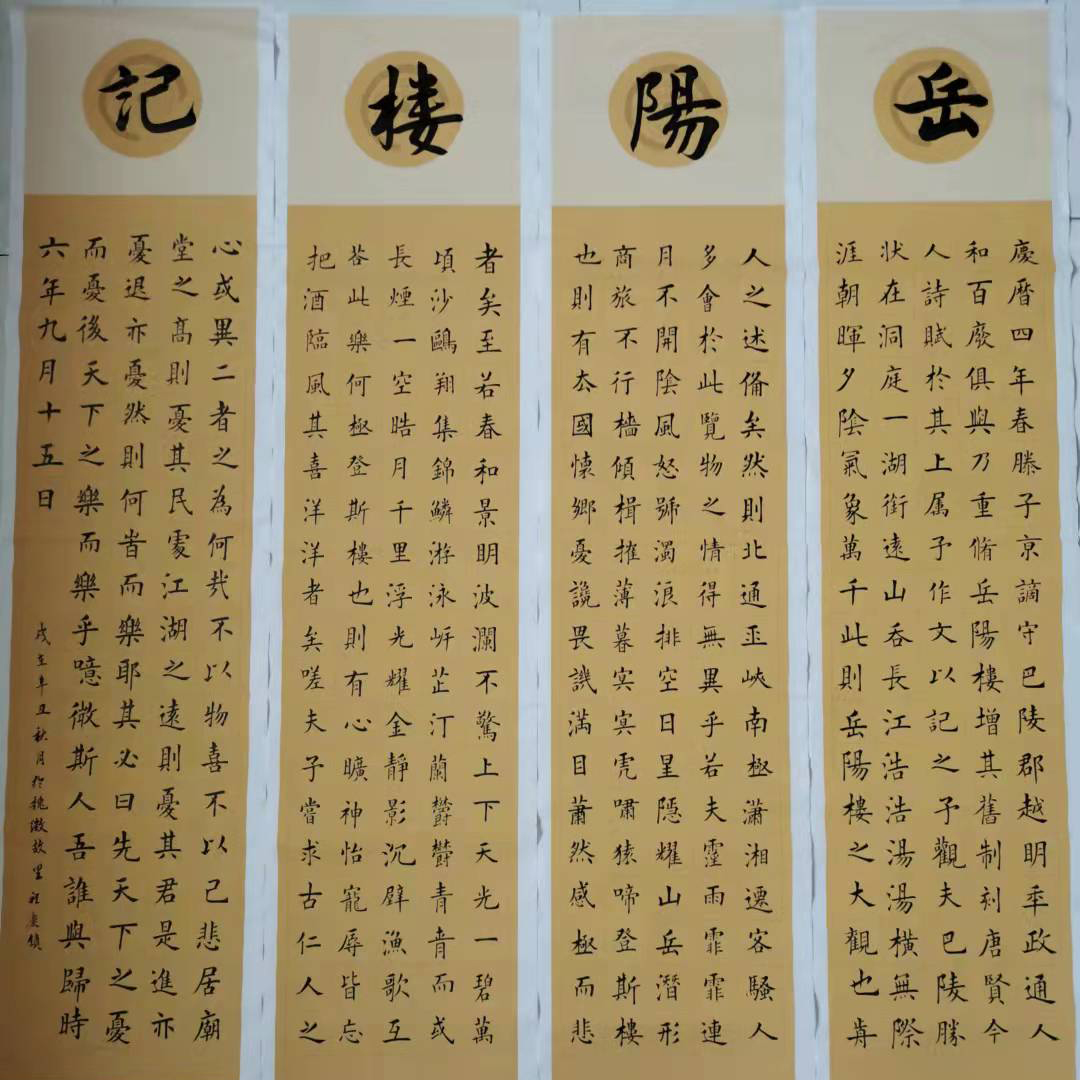 岳
陽
樓
記
慶曆四年春滕子京謫守巴陵郡越明年政通人
和百廢俱興乃重脩岳陽樓增其舊制刻唐賢今
人詩賦於其上属予作文以記之予觀夫巴陵勝
狀在洞庭一湖銜遠山吞長江浩浩湯湯橫無際
涯朝暉夕陰氣象萬千此則岳陽樓之大觀也前
人之述俻矣然則北通巫峽南極瀟湘遷客騷人
多會於此覽物之情得無異乎若夫霪雨霏霏連
月不開陰風怒號濁浪排空日星隱耀山岳潛形
商旅不行檣傾楫摧薄暮冥冥虎嘯猿啼登斯樓
也則有去國懷鄉憂讒畏譏滿目蕭然感極而悲
者矣至若春和景明波瀾不驚上下天光一碧萬
頃沙鷗翔集錦鱗游泳岸芷汀蘭鬱鬱青青而或
長煙一空皓月千里浮光耀金靜影沉璧漁歌互
荅此樂何極登斯樓也則有心曠神怡寵辱皆忘
把酒臨風其喜洋洋者矣嗟夫予嘗求古仁人之
心或異二者之為何哉不以物喜不以己悲居廟
堂之高則憂其民處江湖之遠則憂其君是進亦
憂退亦憂然則何時而樂耶其必曰先天下之憂
而憂後天下之樂而樂乎噫微斯人吾誰與歸時
六年九月十五日
歲在辛丑秋月於故里